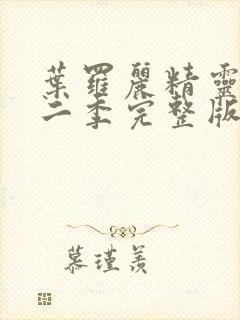 葉羅麗精靈
二季完整版
慕瑾羨